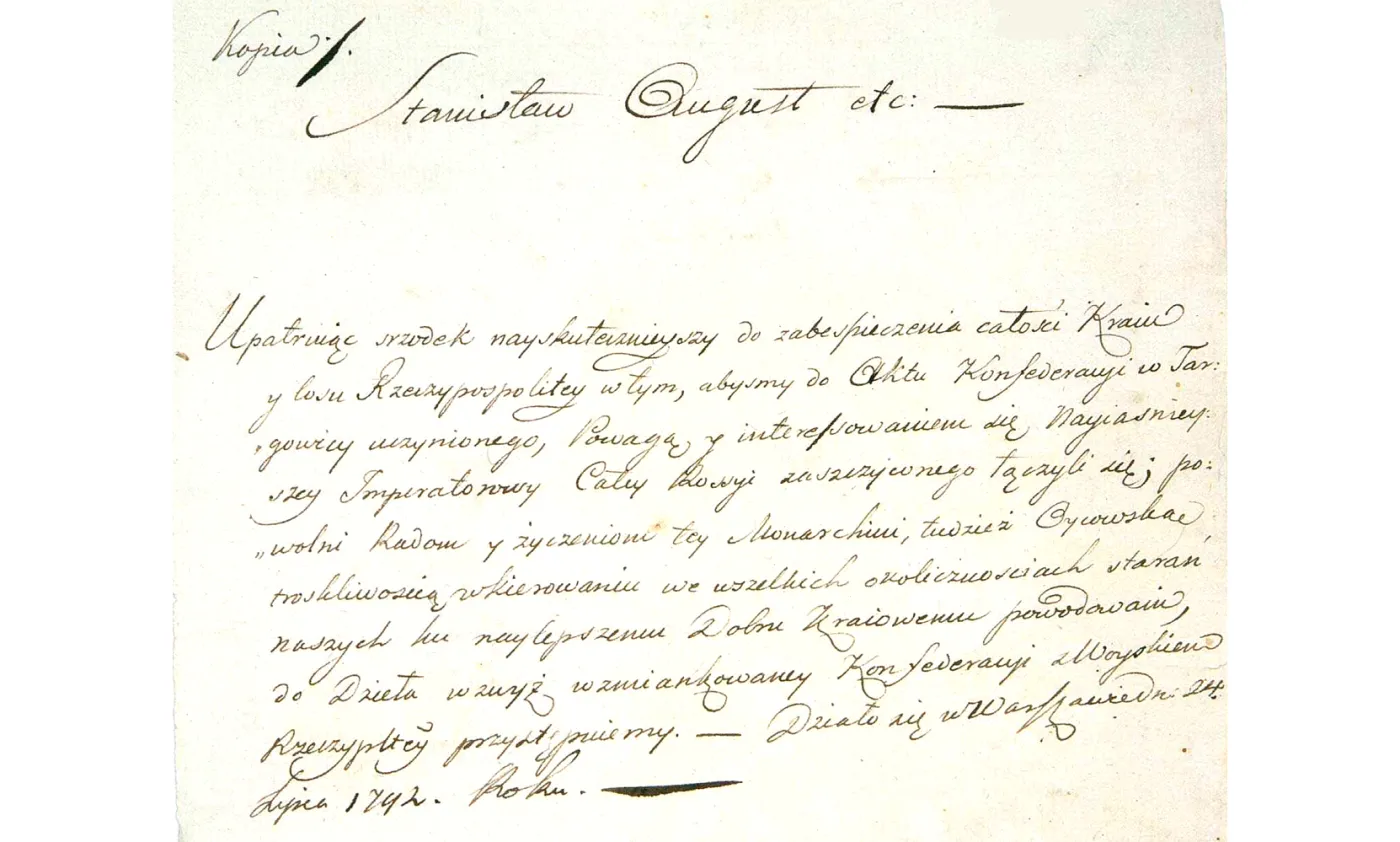 Kopia ·/.
Stanisław August etc: —
Upatruiąc srzodek nayskutecznieyszy do zabespieczenia całości Kraiu
y losu Rzeczypospolitey w tym, abysmy do Aktu Konfederacyi w Tar:
„gowicy uczynionego, Powagą y interessowaniem się Nayiasniey:
szey Imperatorowy Całey Rossyi zaszczyconego łączyli się; po:
„wolni Radom y życzeniom tey Monarchini, tudzież Oycowską
troskliwością w kierowaniu we wszelkich okolicznościach starań
naszych ku naylepszemu Dobru Kraiowemu powodowani,
do Dzieła wzwyż wzmiankowaney Konfederacyi z Woyskiem
Rzeczypltey przystępuiemy. — Działo się w Warszawie dn: 24.
Lipca 1792. Roku. —